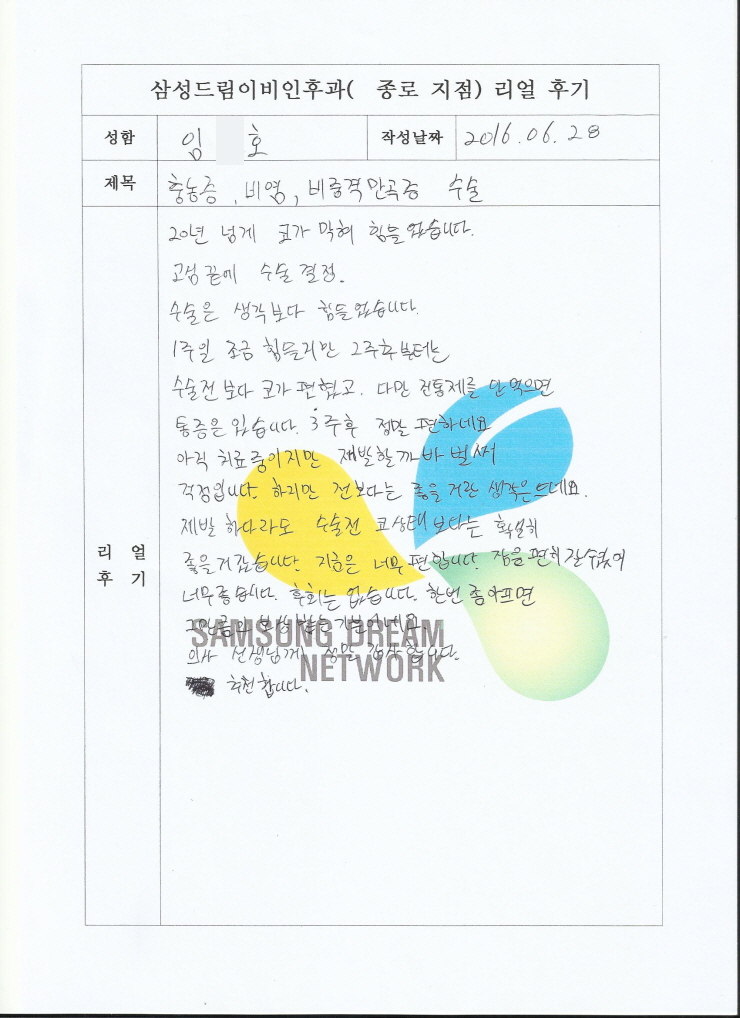 삼성드림이비인후과( 종로 지점) 리얼 후기
성함 임 호 작성날짜 2016.06.28
제목 충농증, 비염, 비중격만곡증 수술
리 얼
후 기
20년 넘게 코가 막혀 힘들었습니다.
고심 끝에 수술 결정.
수술은 생각보다 힘들었습니다.
1주일 조금 힘들지만 2주후부터는
수술전 보다 코가 편했고. 다만 진통제를 안먹으면
통증은 있습니다. 3주후 정말 편하네요
아직 치료중이지만 재발할까바 벌써
걱정입니다. 하지만 전보다는 좋을거란 생각은 드네요.
재발 하더라도 수술전 코상태 보다는 확실히
좋을거 같습니다. 지금은 너무 편합니다. 잠을 편히 잘수있어
너무 좋습니다. 후회는 없습니다. 한번 좀 아프면
보상 받는 기분이네요.
의사 선생님께 정말 감사합니다.
추천합니다.
SAMSUNG DREAM
NETWORK